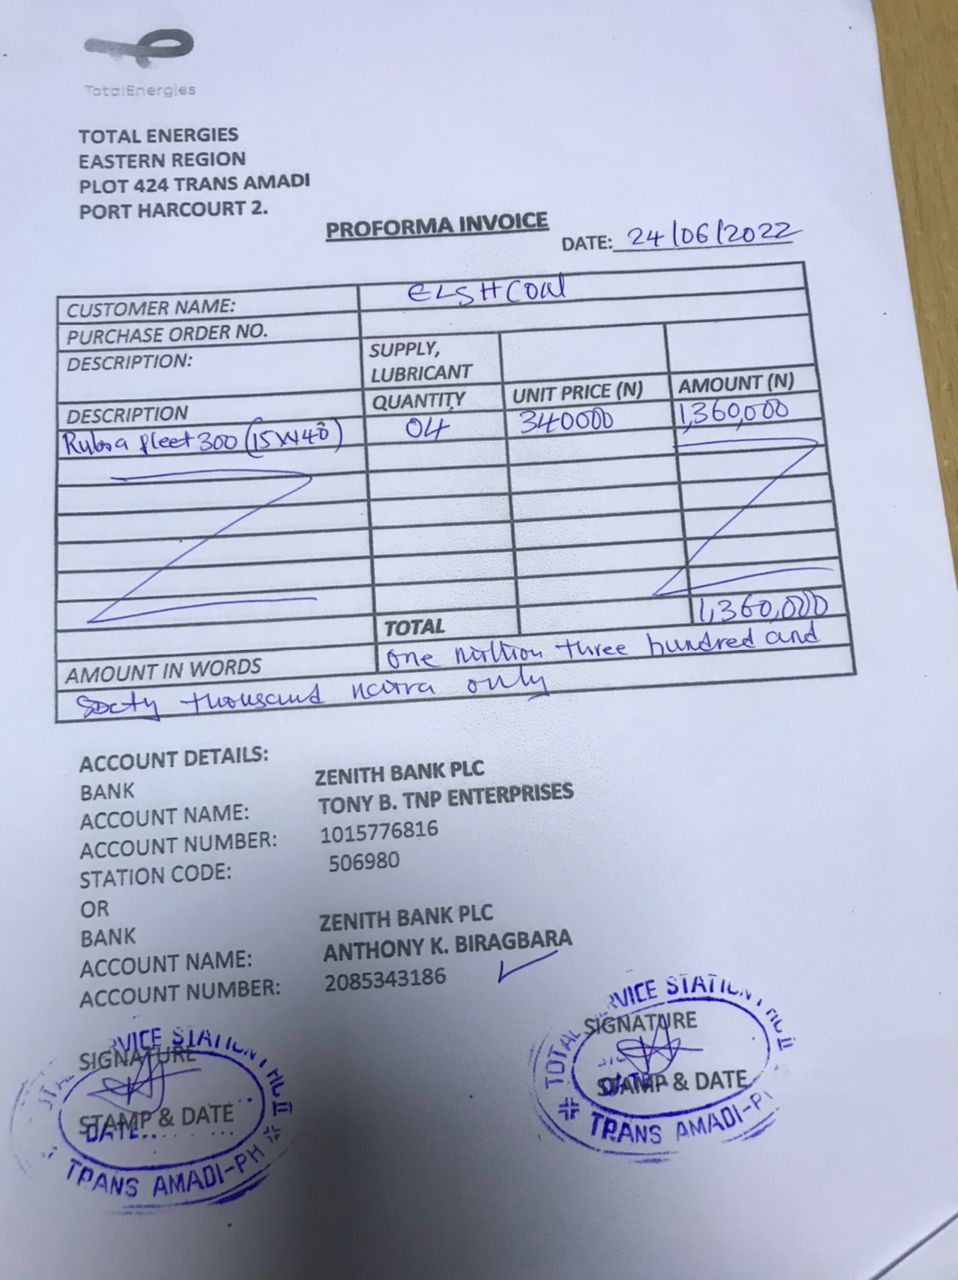 TotalEnergies
TOTAL ENERGIES
EASTERN REGION
PLOT 424 TRANS AMADI
PORT HARCOURT 2.
PROFORMA INVOICE
DATE: 24/06/2022
CUSTOMER NAME: ELSHCOAL
PURCHASE ORDER NO.
DESCRIPTION: SUPPLY,
LUBRICANT
DESCRIPTION QUANTITY UNIT PRICE (N) AMOUNT (N)
Rubia fleet 300 (15W40) 04 340000 1,360,000
TOTAL 1,360,000
AMOUNT IN WORDS One million three hundred and
Sixty thousand naira only
ACCOUNT DETAILS:
BANK ZENITH BANK PLC
ACCOUNT NAME: TONY B. TNP ENTERPRISES
ACCOUNT NUMBER: 1015776816
STATION CODE: 506980
OR
BANK ZENITH BANK PLC
ACCOUNT NAME: ANTHONY K. BIRAGBARA
ACCOUNT NUMBER: 2085343186
SIGNATURE
STAMP & DATE
DATE
TRANS AMADI-PH
TOTAL SERVICE STATION
SIGNATURE
STAMP & DATE
TRANS AMADI-PH